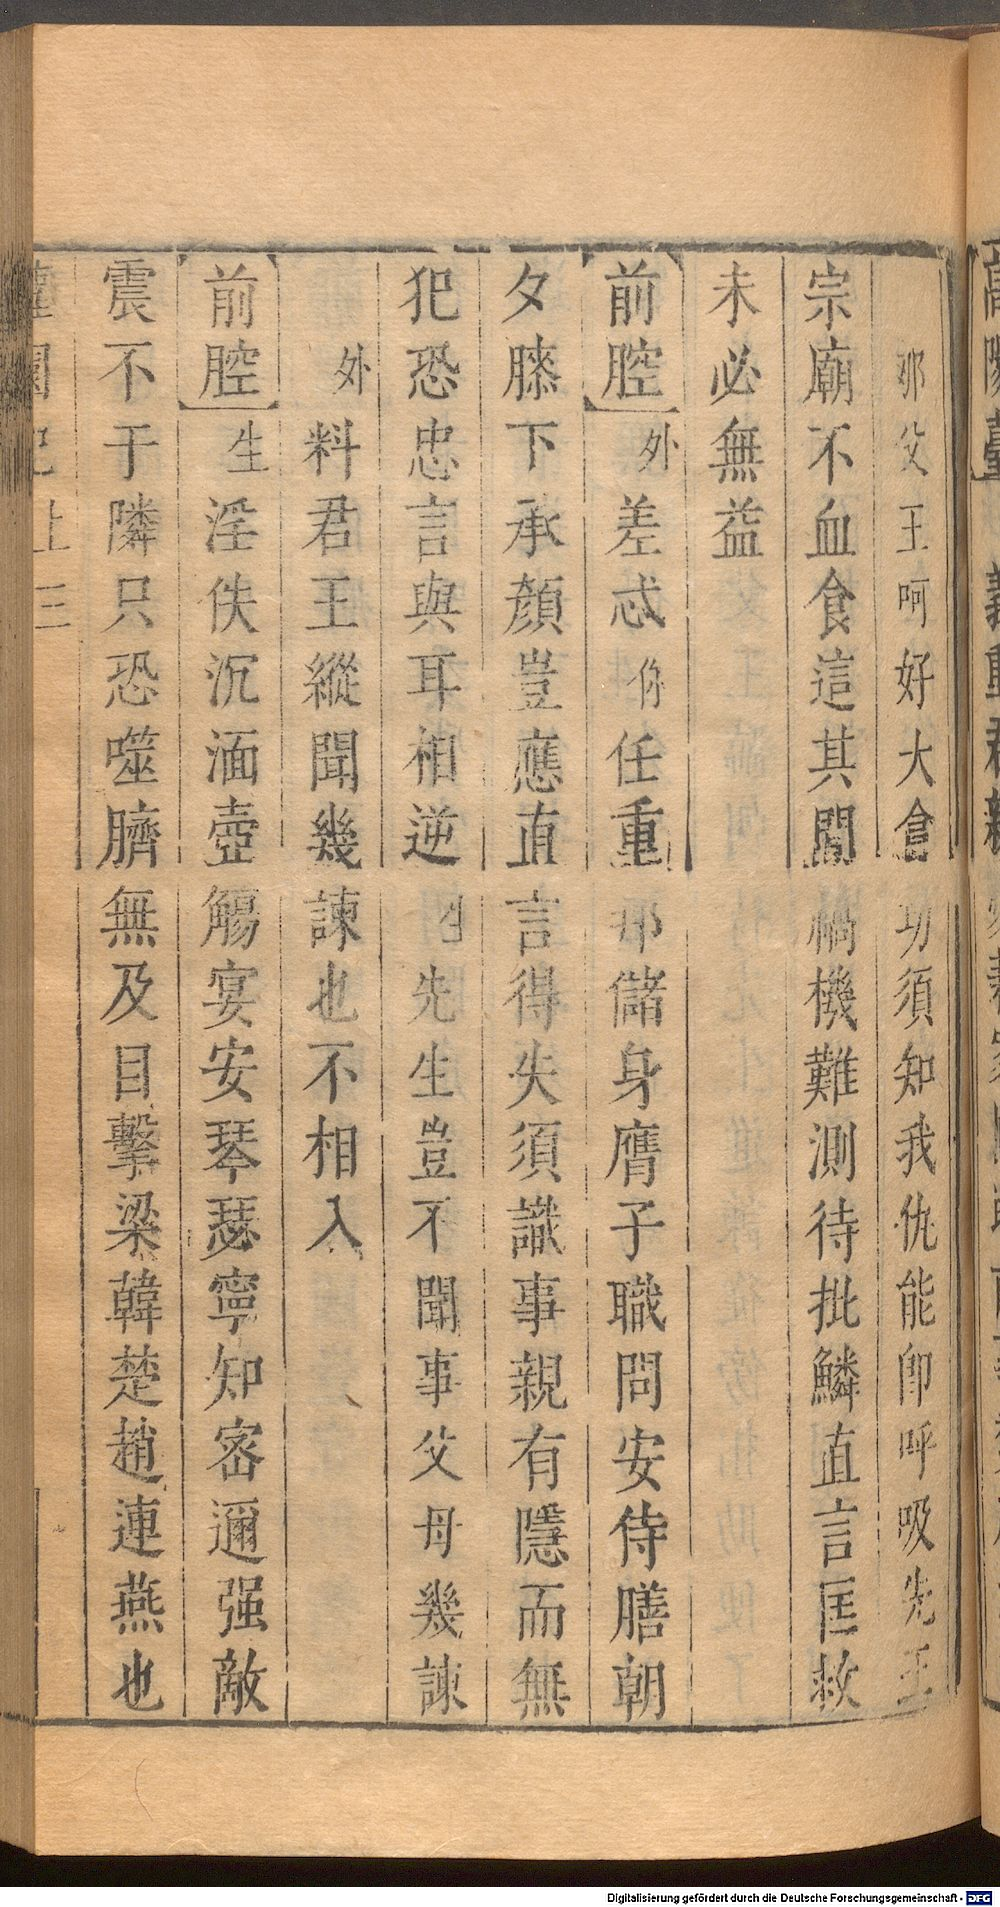 那父王呵好大會功須知我仇能卸呼吸先王
宗廟不血食這其間禍機難測待批鱗直言匡救
未必無益
前腔外差忒你任重那儲身膺子職問安侍膳朝
夕膝下承顏豈應直言得失須識事親有隱而無
犯恐忠言與耳相逆生先生豈不聞事父母幾諫
外料君王縱聞幾諫也不相入
前腔生淫佚沉湎壺觴宴安琴瑟寧知密邇强敵
震不于隣只恐噬臍無及目擊梁韓楚趙連燕也
園記上三
Digitalisierung gefördert durch die Deutsche Forschungsgemeinschaft - DFG